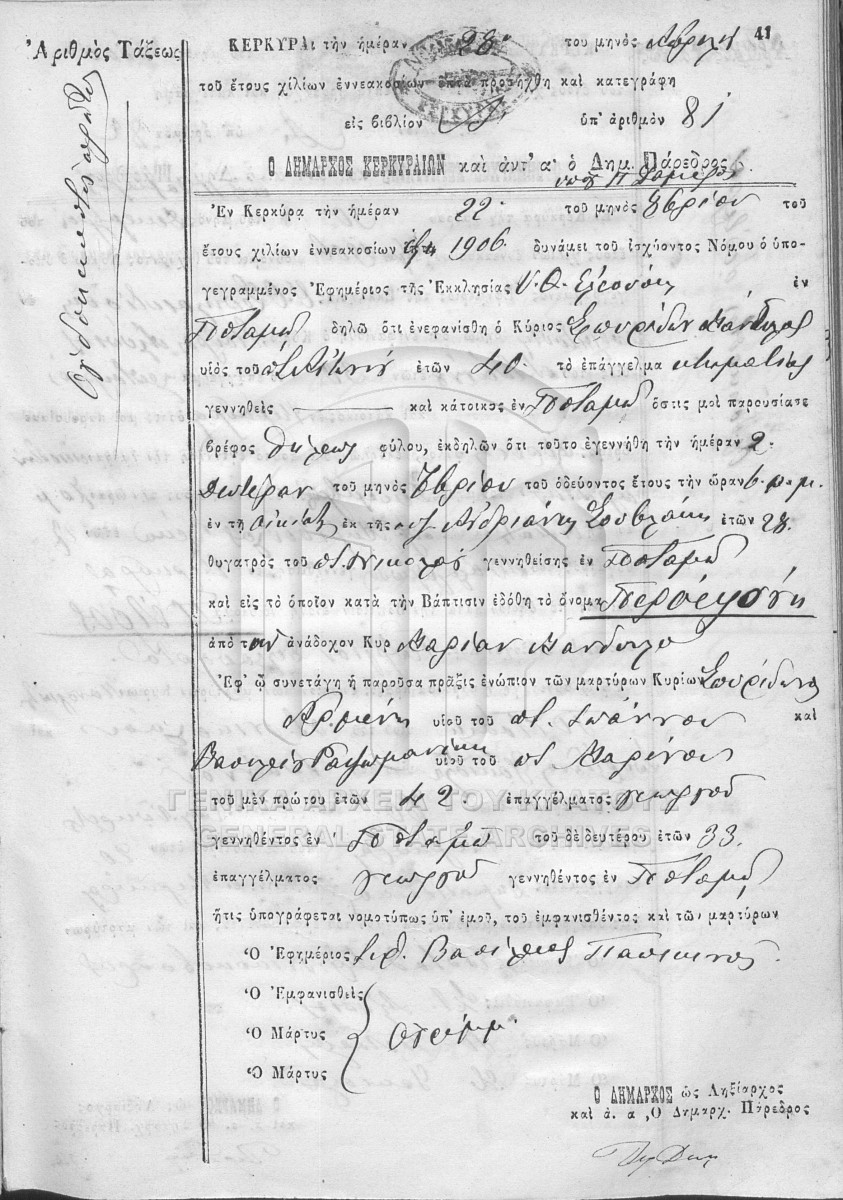 41
Ἀριθμὸς Τάξεως
Ὀγδοηκοστὸς πρῶτος
ΚΕΡΚΥΡΑι τὴν ἡμέραν 28 τοῦ μηνὸς
τοῦ ἔτους χιλίων ἐννεακοσίων ἑπτὰ προσήχθη καὶ κατεγράφη
εἰς βιβλίον ὑπ' ἀριθμὸν 81
Ὁ ΔΗΜΑΡΧΟΣ ΚΕΡΚΥΡΑΙΩΝ καὶ ἀντ' α' ὁ Δημ. Πάρεδρος
Ἐν Κερκύρα τὴν ἡμέραν 22 τοῦ μηνὸς 8βρίου τοῦ
ἔτους χιλίων ἐννεακοσίων 1906 δυνάμει τοῦ ἰσχύοντος Νόμου ὁ ὑπο-
γεγραμμένος Ἐφημέριος τῆς Ἐκκλησίας Υ. Θ. Ἐλεούσης ἐν
Ποταμῷ δηλῶ ὅτι ἐνεφανίσθη ὁ Κύριος Σπυρίδων Μάνδυλας
υἱὸς τοῦ ἐτῶν 40 τὸ ἐπάγγελμα κτηματίας
γεννηθεὶς καὶ κάτοικος ἐν Ποταμῷ ὅστις μοὶ παρουσίασε
βρέφος θήλεος φύλου, ἐκδηλῶν ὅτι τοῦτο ἐγεννήθη τὴν ἡμέραν 2
Δευτέραν τοῦ μηνὸς 8βρίου τοῦ ὁδεύοντος ἔτους τὴν ὥραν 6 μ.μ.
ἐν τῇ οἰκίᾳ ἐκ τῆς Ἀνδριάνης Σουβλάκη ἐτῶν 28
θυγατρὸς τοῦ Νικολάου γεννηθείσης ἐν Ποταμῷ
καὶ εἰς τὸ ὁποῖον κατὰ τὴν Βάπτισιν ἐδόθη τὸ ὄνομα Περσεφόνη
ἀπὸ τὴν ἀνάδοχον Κυρ Μαρίαν Μάνδυλα
Ἐφ' ᾧ συνετάγη ἡ παροῦσα πρᾶξις ἐνώπιον τῶν μαρτύρων Κυρίων Σπυρίδωνα
Ἀρμένη υἱοῦ τοῦ Ἰωάννου καὶ
Βασιλείου υἱοῦ τοῦ Μαρίνου
τοῦ μὲν πρώτου ἐτῶν 42 ἐπαγγέλματος γεωργοῦ
ΓΕΝΙΚΑ ΑΡΧΕΙΑ ΤΟΥ ΚΡΑΤΟΥΣ
GENERAL STATE ARCHIVES
γεννηθέντος ἐν Ποταμῷ τοῦ δὲ δευτέρου ἐτῶν 33
ἐπαγγέλματος γεωργοῦ γεννηθέντος ἐν Ποταμῷ
ἥτις ὑπογράφεται νομοτύπως ὑπ' ἐμοῦ, τοῦ ἐμφανισθέντος καὶ τῶν μαρτύρων
Ὁ Ἐφημέριος Βασίλειος
Ὁ Ἐμφανισθεὶς
Ὁ Μάρτυς
Ὁ Μάρτυς
Ὁ ΔΗΜΑΡΧΟΣ ὡς Ληξίαρχος
καὶ ἀ. α. Ὁ Δημαρχ. Πάρεδρος